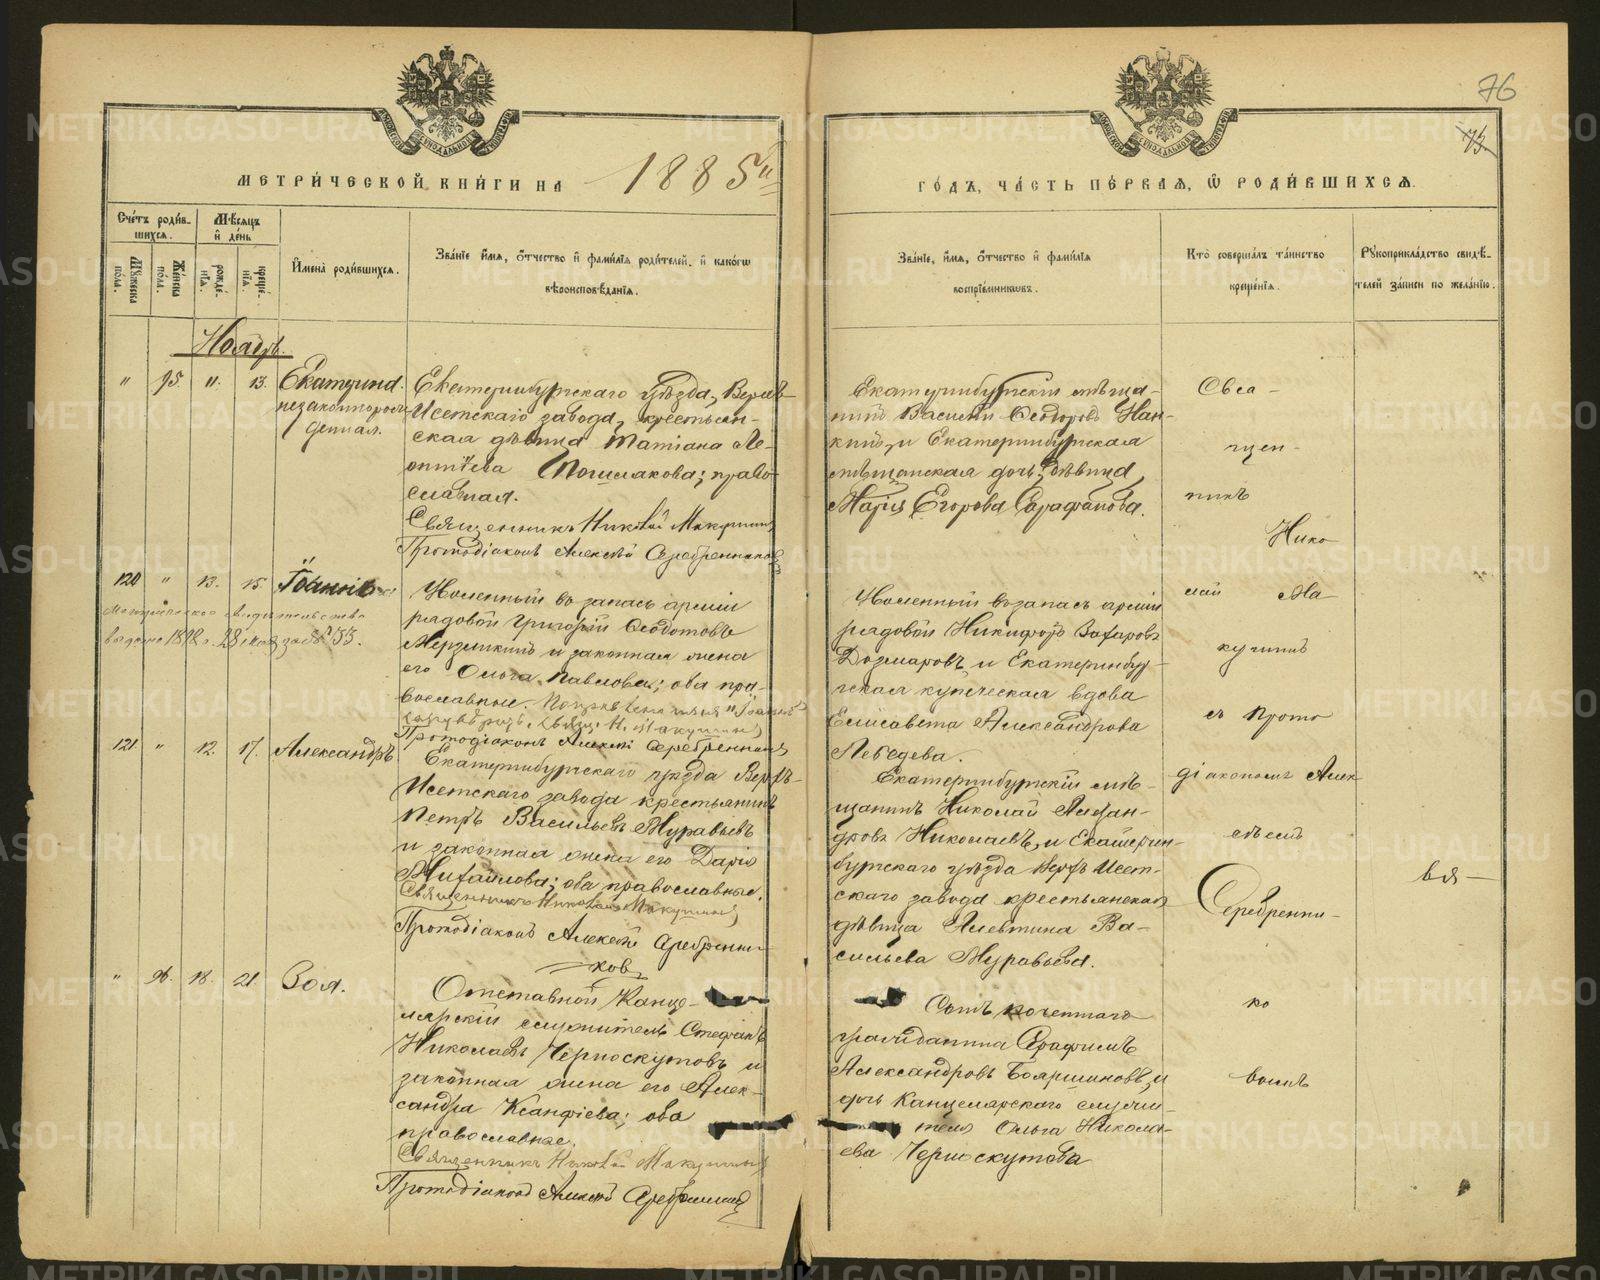 76
73
МЕТРИ́ЧЕСКОЙ КНИ́ГИ НА 1885й
ГО́ДЪ, ЧА́СТЬ ПЕ́РВАЯ, Ѡ РОДИ́ВШИХСЯ.
Сче́тъ роди́в-
шихся.
Мѣ́сяцъ
и҆ де́нь
Му́жеска
по́ла.
Же́нска
по́ла.
рожде́-
нїѧ.
креще́-
нїѧ.
И҆мена̀ роди́вшихся.
Зва́нїе и҆́мя, ѻ҆́тчество и҆ фами́лїя роди́телей, и҆ како́гѡ
вѣроисповѣ́данїя.
Зва́нїе, и҆́мя, ѻ҆́тчество и҆ фами́лїя
воспрїе́мниковъ.
Кто̀ соверша́лъ та́инство
креще́нїя.
Рꙋкоприкла́дство свидѣ́-
телей за́писи по жела́нїю.
Ноябрь.
" 95. 11. 13. Екатерина.
незаконнорож-
денная.
Екатеринбургскаго уѣзда, Верхъ-
Исетскаго завода, крестьян-
ская дѣвица Татіана Ле-
онтіева ; право-
славная.
Священникъ Николай Макушинъ
Протодіаконъ Алексѣй Серебренниковъ
Екатеринбургскій мѣща-
нинъ Василій Ѳеодоровъ Нан-
кинъ, и Екатеринбургская
мѣщанская дочь, дѣвица
Марія Егорова Сарафанова.
Свѧ-
щен-
никъ
Нико
лай Ма
кушинъ
съ Прото
діакономъ Алек
сѣемъ
Серебренни-
ко
вымъ
120 " 13. 15. Іоаннъ
Метрическое свидѣтельство
выдано 1892 г. 28 мая за № 53.
Уволенный въ запасъ арміи
рядовой Григорій Ѳедотовъ
Мерзлякинъ и законная жена
его Ольга Павлова; оба пра-
вославные.
Протодіаконъ Алексѣй Серебренниковъ
Уволенный въ запасъ арміи
рядовой Никифоръ Захаровъ
Дозмаровъ и Екатеринбур-
гская купеческая вдова
Елисавета Александрова
Лебедева.
121. " 12. 17. Александръ
Екатеринбургскаго уѣзда Верхъ-
Исетскаго завода крестьянинъ
Петръ Васильевъ Муравьевъ
и законная жена его Дарія
Михайлова; оба православные.
Священникъ Николай Макушинъ
Протодіаконъ Алексѣй Серебренни-
ковъ
Екатеринбургскій мѣ-
щанинъ Николай Алексан-
дровъ Николаевъ, и Екатерин-
бургскаго уѣзда Верхъ Исет-
скаго завода крестьянская
дѣвица Алевтина Ва-
сильева Муравьева.
" 96. 18. 21. Зоя.
Отставной Канце-
лярскій служитель Стефанъ
Николаевъ Черноскутовъ и
законная жена его Алек-
сандра Ксанфіева; оба
православные.
Священникъ Николай Макушинъ
Протодіаконъ Алексѣй Серебренниковъ
Сынъ почетнаго
гражданина Серафимъ
Александровъ Бояршиновъ, и
дочь Канцелярскаго служи-
теля Ольга Никола-
ева Черноскутова